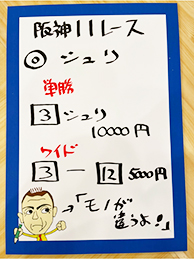 阪神11レース
◎シュリ
単勝
3 シュリ
10000円
ワイド
3 ― 12 5000円
→「モノが
違うよ!」